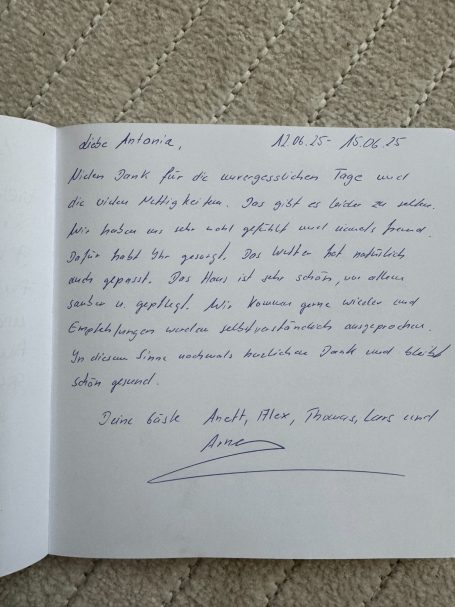 Liebe Antonia, 12.06.25 - 15.06.25
Vielen Dank für die unvergesslichen Tage und
die vielen Nettigkeiten. Das gibt es leider zu selten.
Wir haben uns sehr wohl gefühlt und niemals fremd.
Dafür habt Ihr gesorgt. Das Wetter hat natürlich
auch gepasst. Das Haus ist sehr schön, vor allem
sauber u. gepflegt. Wir kommen gerne wieder und
Empfehlungen werden selbstverständlich ausgesprochen.
In diesem Sinne nochmals herzlichen Dank und bleibt
schön gesund.
Deine Gäste Anett, Alex, Thomas, Lars und
Arne